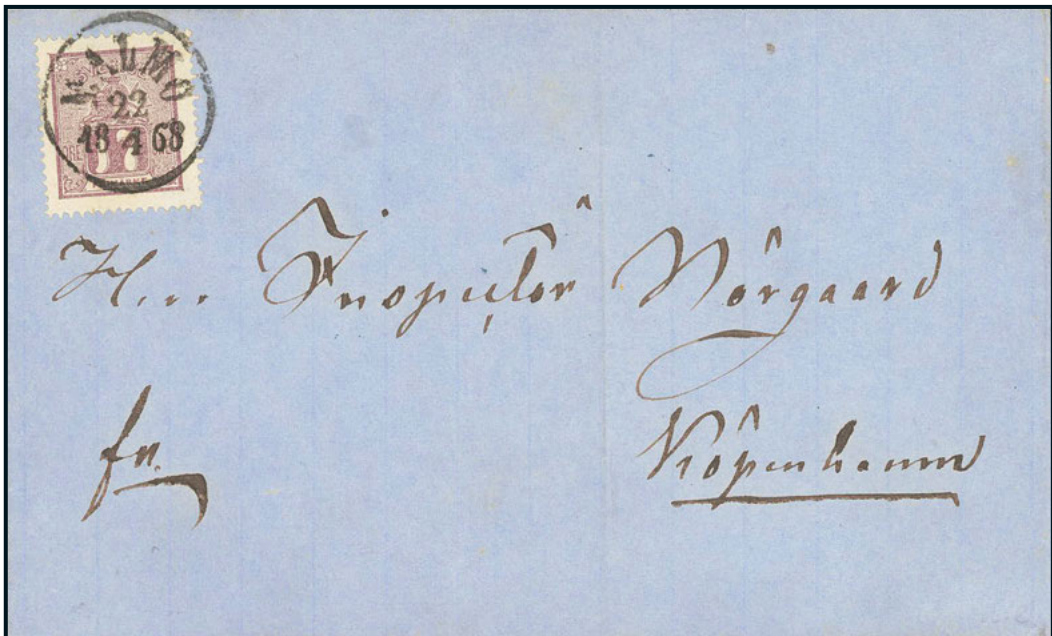 MALMÖ
22
18 1 68
ÖRE 17
Herr Inspector Nörgaard
fr.
Kiöpenhamn